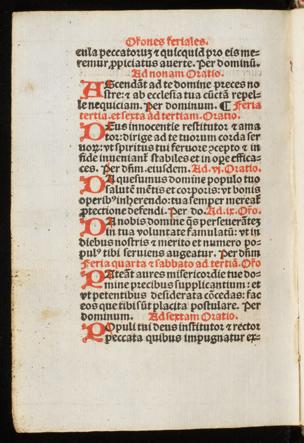 Orōnes feriales.
cula peccatorūꝫ ⁊ quicquid pro eis me-
remur, ꝓpiciatus auerte. Per dominū.
Ad nonam Oratio.
AScendāt ad te domine preces no
stre: ⁊ ab ecclesia tua cūctā repel-
le nequiciam. Per dominum. ¶ Feria
tertia. et sexta ad tertiam. Oratio.
DEus innocentie restitutor ⁊ ama
tor: dirige ad te tuorum corda ser
uorꝝ: vt spiritus tui feruore ꝯcepto ⁊ in
fide inueniant᷑ stabiles et in ope effica-
ces. Per dn̄m. eiusdem. Ad .vj. Oratio.
DA quesumus domine populo tuo
salutē mētis et corporis: vt bonis
operibꝰ inherendo: tua semper mereat᷑
ꝓtectione defendi. Per do. Ad .ix. Orō.
DA nobis domine q̄s perseuerātez
in tua voluntate famulatū: vt in
diebus nostris ⁊ merito et numero po-
pulꝰ tibi seruiens augeatur. Per dn̄m
Feria quarta ⁊ sabbato ad tertiā. Orō
PAteāt aures misericordie tue do-
mine precibus supplicantium: et
vt petentibus desiderata cōcedas: fac
eos que tibi sūt placita postulare. Per
dominum. Ad sextam Oratio.
POpuli tui deus institutor ⁊ rector
peccata quibus impugnatur ex-